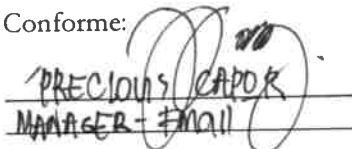 Conforme:
PRECIOUS CAPOR
MANAGER - EMAll